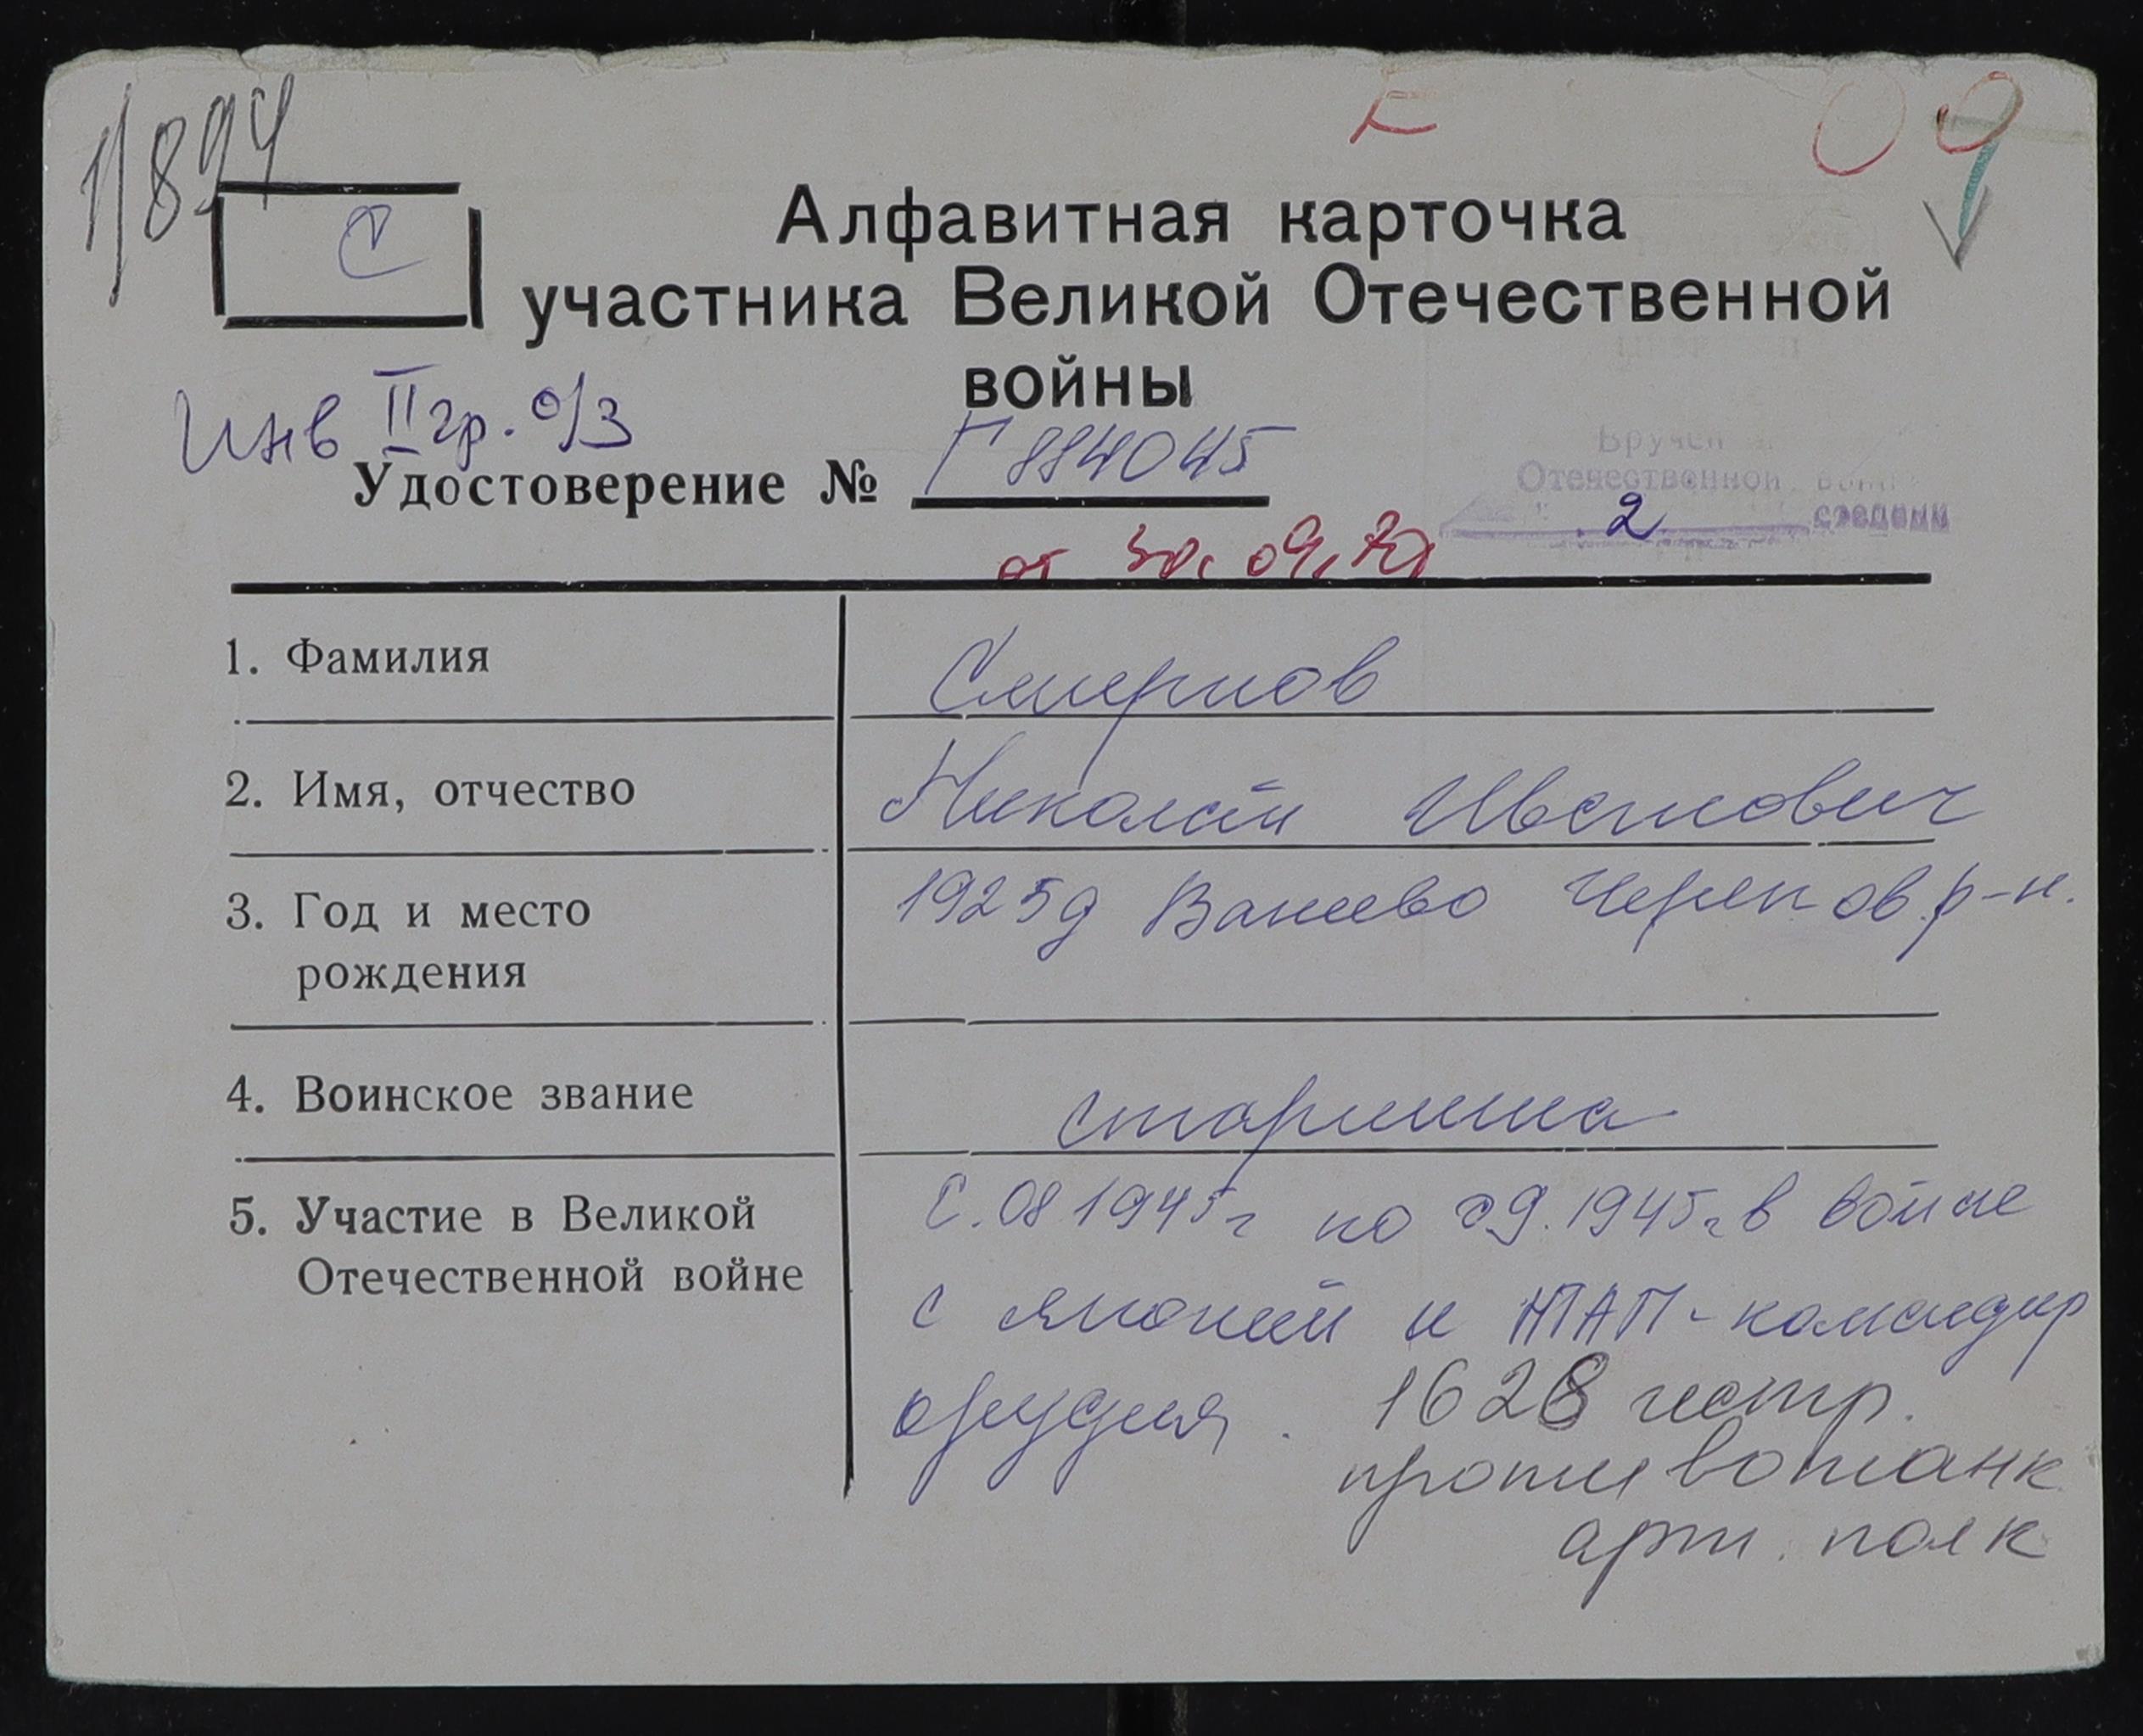 1/894
С
Е
09
Алфавитная карточка
участника Великой Отечественной
войны
Инв II гр. о/з
Удостоверение № Г 884045
Вручен
Отечественной
2 степени
от 30.09.
1. Фамилия Смирнов
2. Имя, отчество Николай Иванович
3. Год и место рождения 1925 д Ванеево Черепов. р-н.
4. Воинское звание старшина
5. Участие в Великой Отечественной войне С. 08 1945г по 09.1945г. в войне
с японией командир
орудия. 1628 истр.
противотанк
арт. полк